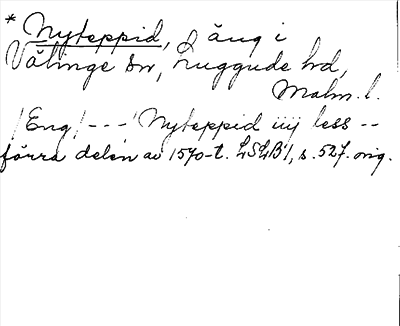 * Nyteppid, äng i
Välinge sn, Luggude hd,
Malm. l.
/Eng/ --- Nyteppid iiij less --
förra delen av 1570-t. LSLB1, s. 527. orig.